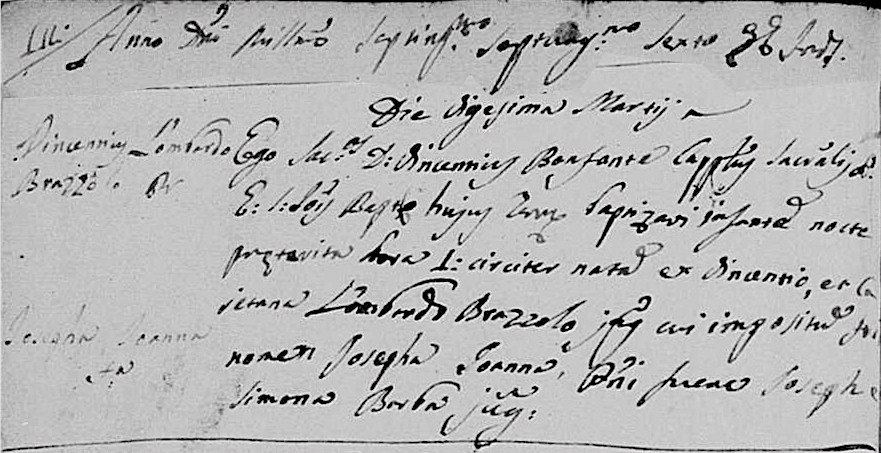 Anno Dni Millmo Septingmo Septuagmo Sexto Ind.
Die Vigesima Martij
Vincentius Lombardo
Brazzolo
Ego Sac. D: Vincentius Bonfante Capplus Sacralis
E: S: Jois Bapte hujus baptizavi infantem nocte
praeterita hora 1: circiter nata ex Vincentio, et Ca
jetana Lombardo Brazzolo jug cui impositu fuit
nomen Josepha Joanna, Pni fuere Joseph e
Simona Barba jug:
Josepha Joanna